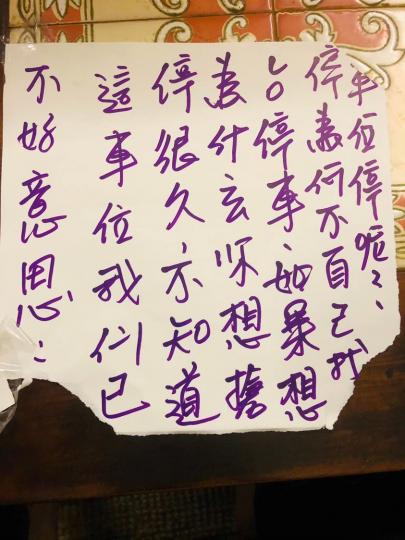 不好意思：
這車位我们已
停很久，不知道
為什么你想
停車、如果想
停為何不自己找
車位停呢？、